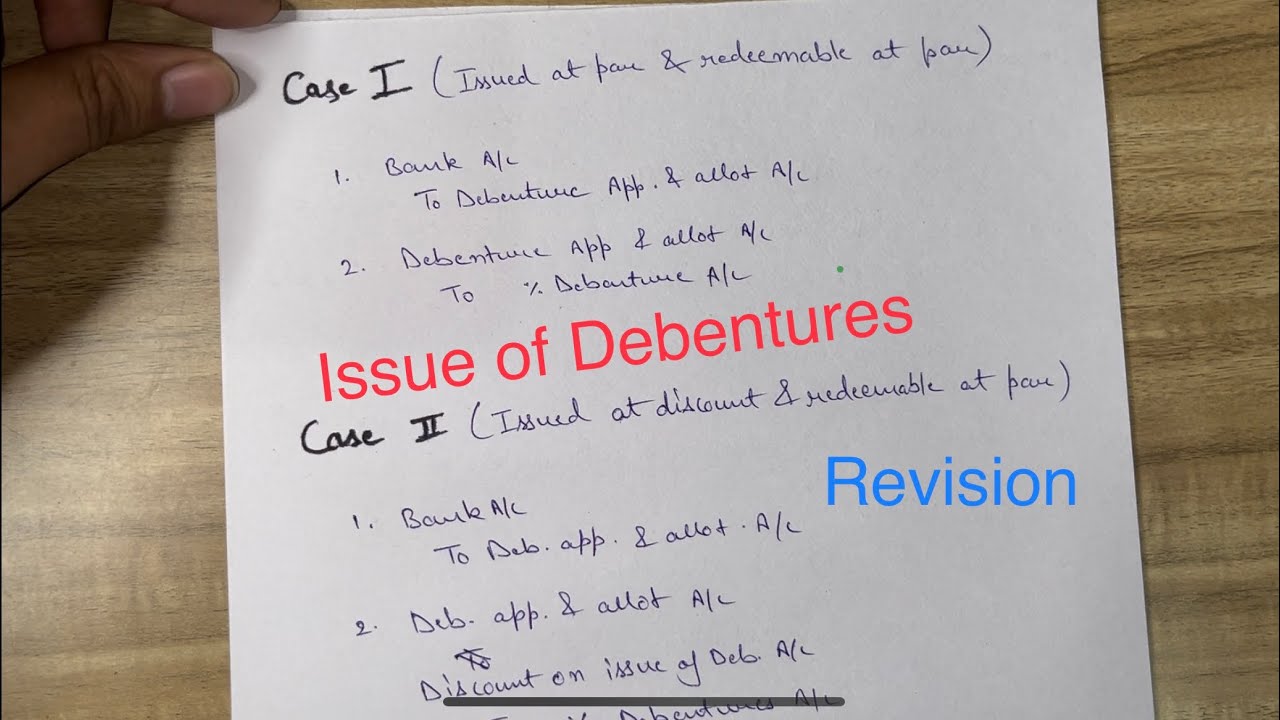 Case I (Issued at par & redeemable at par)
1. Bank A/c
To Debenture App. & allot A/c
2. Debenture App & allot A/c
To % Debenture A/c
Issue of Debentures
Case II (Issued at discount & redeemable at par)
Revision
1. Bank A/c
To Deb. app. & allot. A/c
2. Deb. app. & allot A/c
Discount on issue of Deb. A/c
To % Debentures A/c